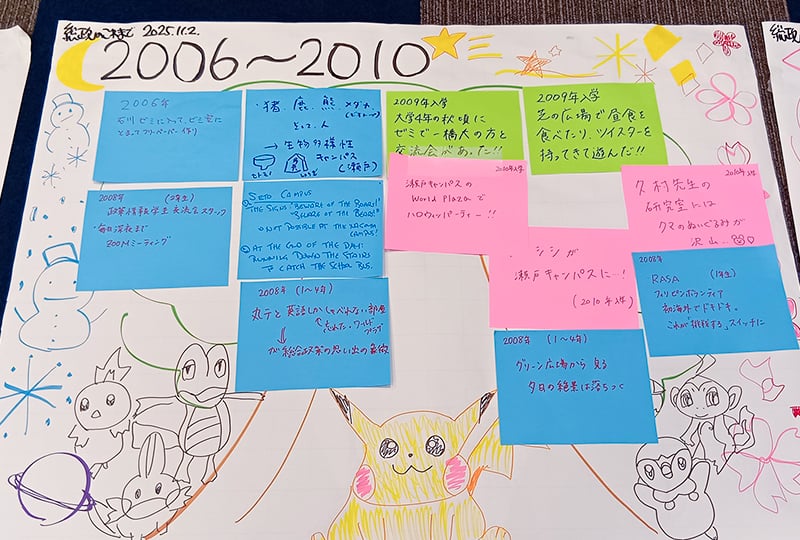 総政のこれまで 2025.11.2.
2006～2010
2006年
石川ゼミに入って、ゼミ室に
とまってフリーペーパー作り
猪、鹿、熊、メダカ、
そして、人
→生物多様性
キャンパス
(瀬戸)
2009年入学
大学4年の秋頃に
ゼミで一橋大の方と
交流会があった!!
2009年入学
芝の広場で昼食を
食べたり、ツイスターを
持ってきて遊んだ!!
2008年 (2年生)
政策情報学生交流会スタッフ
・毎日深夜まで
ZOOMミーティング
SETO CAMPUS
THE SIGNS: "BEWARE OF THE BOARS!"
"BEWARE OF THE BEARS!"
NOT POSSIBLE AT THE NAGOYA
CAMPUS!
AT THE END OF THE DAY:
RUNNING DOWN THE STAIRS
TO CATCH THE SCHOOL BUS.
2010年入学
瀬戸キャンパスの
World Plazaで
ハロウィンパーティー!!
2010年入学
久村先生の
研究室には
クマのぬいぐるみが
沢山..
シシが
瀬戸キャンパスに…!
(2010年入学)
2008年 (1年生)
RASA
フィリピンボランティア
初海外でドキドキ。
これが「挑戦する」スイッチに
2008年 (1～4年)
丸テと英語しかしゃべれない部屋
ワールド
プラザ
が総合政策の思い出の象徴
2008年 (1～4年)
グリーン広場から見る
夕日の絶景は落ちつく